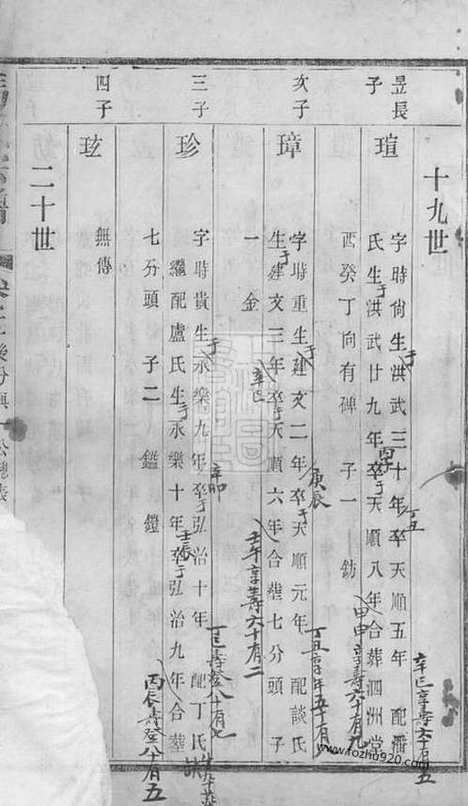 十九世
昱長子
瑄
字時尙生于洪武三十年卒天順五年 配潘
丁丑
辛巳享壽六十有五
氏生于洪武廿九年卒于天順八年合葬泗洲堂
丙子
甲申享壽六十有九
西癸丁向有碑 子一 鈁
次子
璋
字時重生于建文二年卒于天順元年 配談氏
庚辰
丁丑享年五十有
生于建文三年卒于天順六年合葬七分頭 子
辛巳
壬午享壽六十有二
一 金
三子
珍
字時貴生于永樂九年卒于弘治十年 配丁氏
辛卯
丁巳壽登八十有七
繼配盧氏生于永樂十年卒于弘治九年合葬
壬辰
丙辰壽登八十有五
七分頭 子二 鑑 鎧
四子
玹
無傳
二十世
www.fozhu920.com